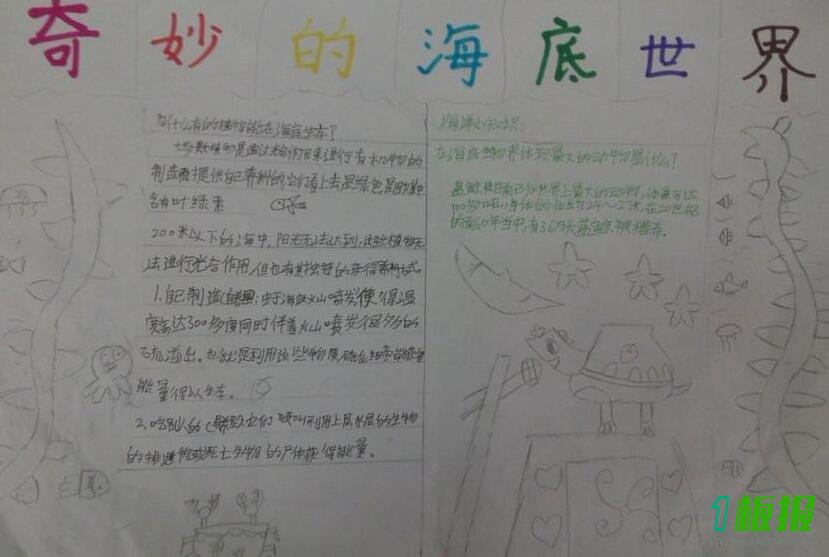 奇妙的海底世界
为什么有的植物能在海底生存？
大多数植物是通过给们自来进行有机物的
制造提供自己养料的，它们看上去是绿色是因其中
含有叶绿素
200米以下的海中，阳光无法达到，这些植物无
法进行光合作用，但也有其独特的获得养料方式。
1.自己制造：由于海底火山喷发使得温
度高达300多度同时伴着火山喷发很多的
硫溢出。也就是利用这些物质硫化
能量得以生存。
2.吃别人的它们利用上层水层的生物
的排遗物或死亡生物的尸体获得能量。
海洋小知识：
在海底生物界体积最大的动物是什么？
蓝鲸是目前已知世界上最大的动物，体重可达
100多吨，身体的长为24～27米，在20世纪
的前60年当中，有36万头蓝鲸被捕杀。
1板报